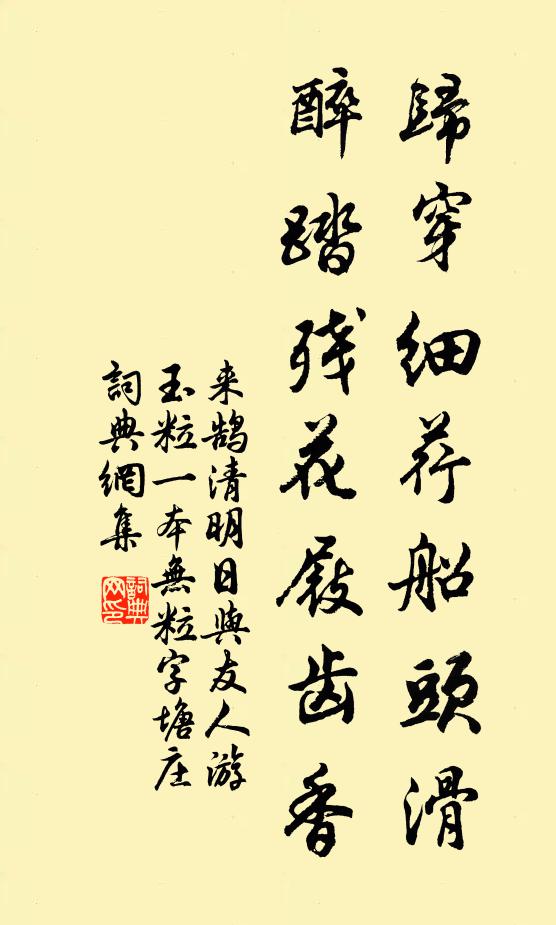 歸穿細荇船頭滑
醉踏残花屐齿香
来鵠清明日與友人游
玉粒一本無粒字塘庄
詞典網集
詞典
网印